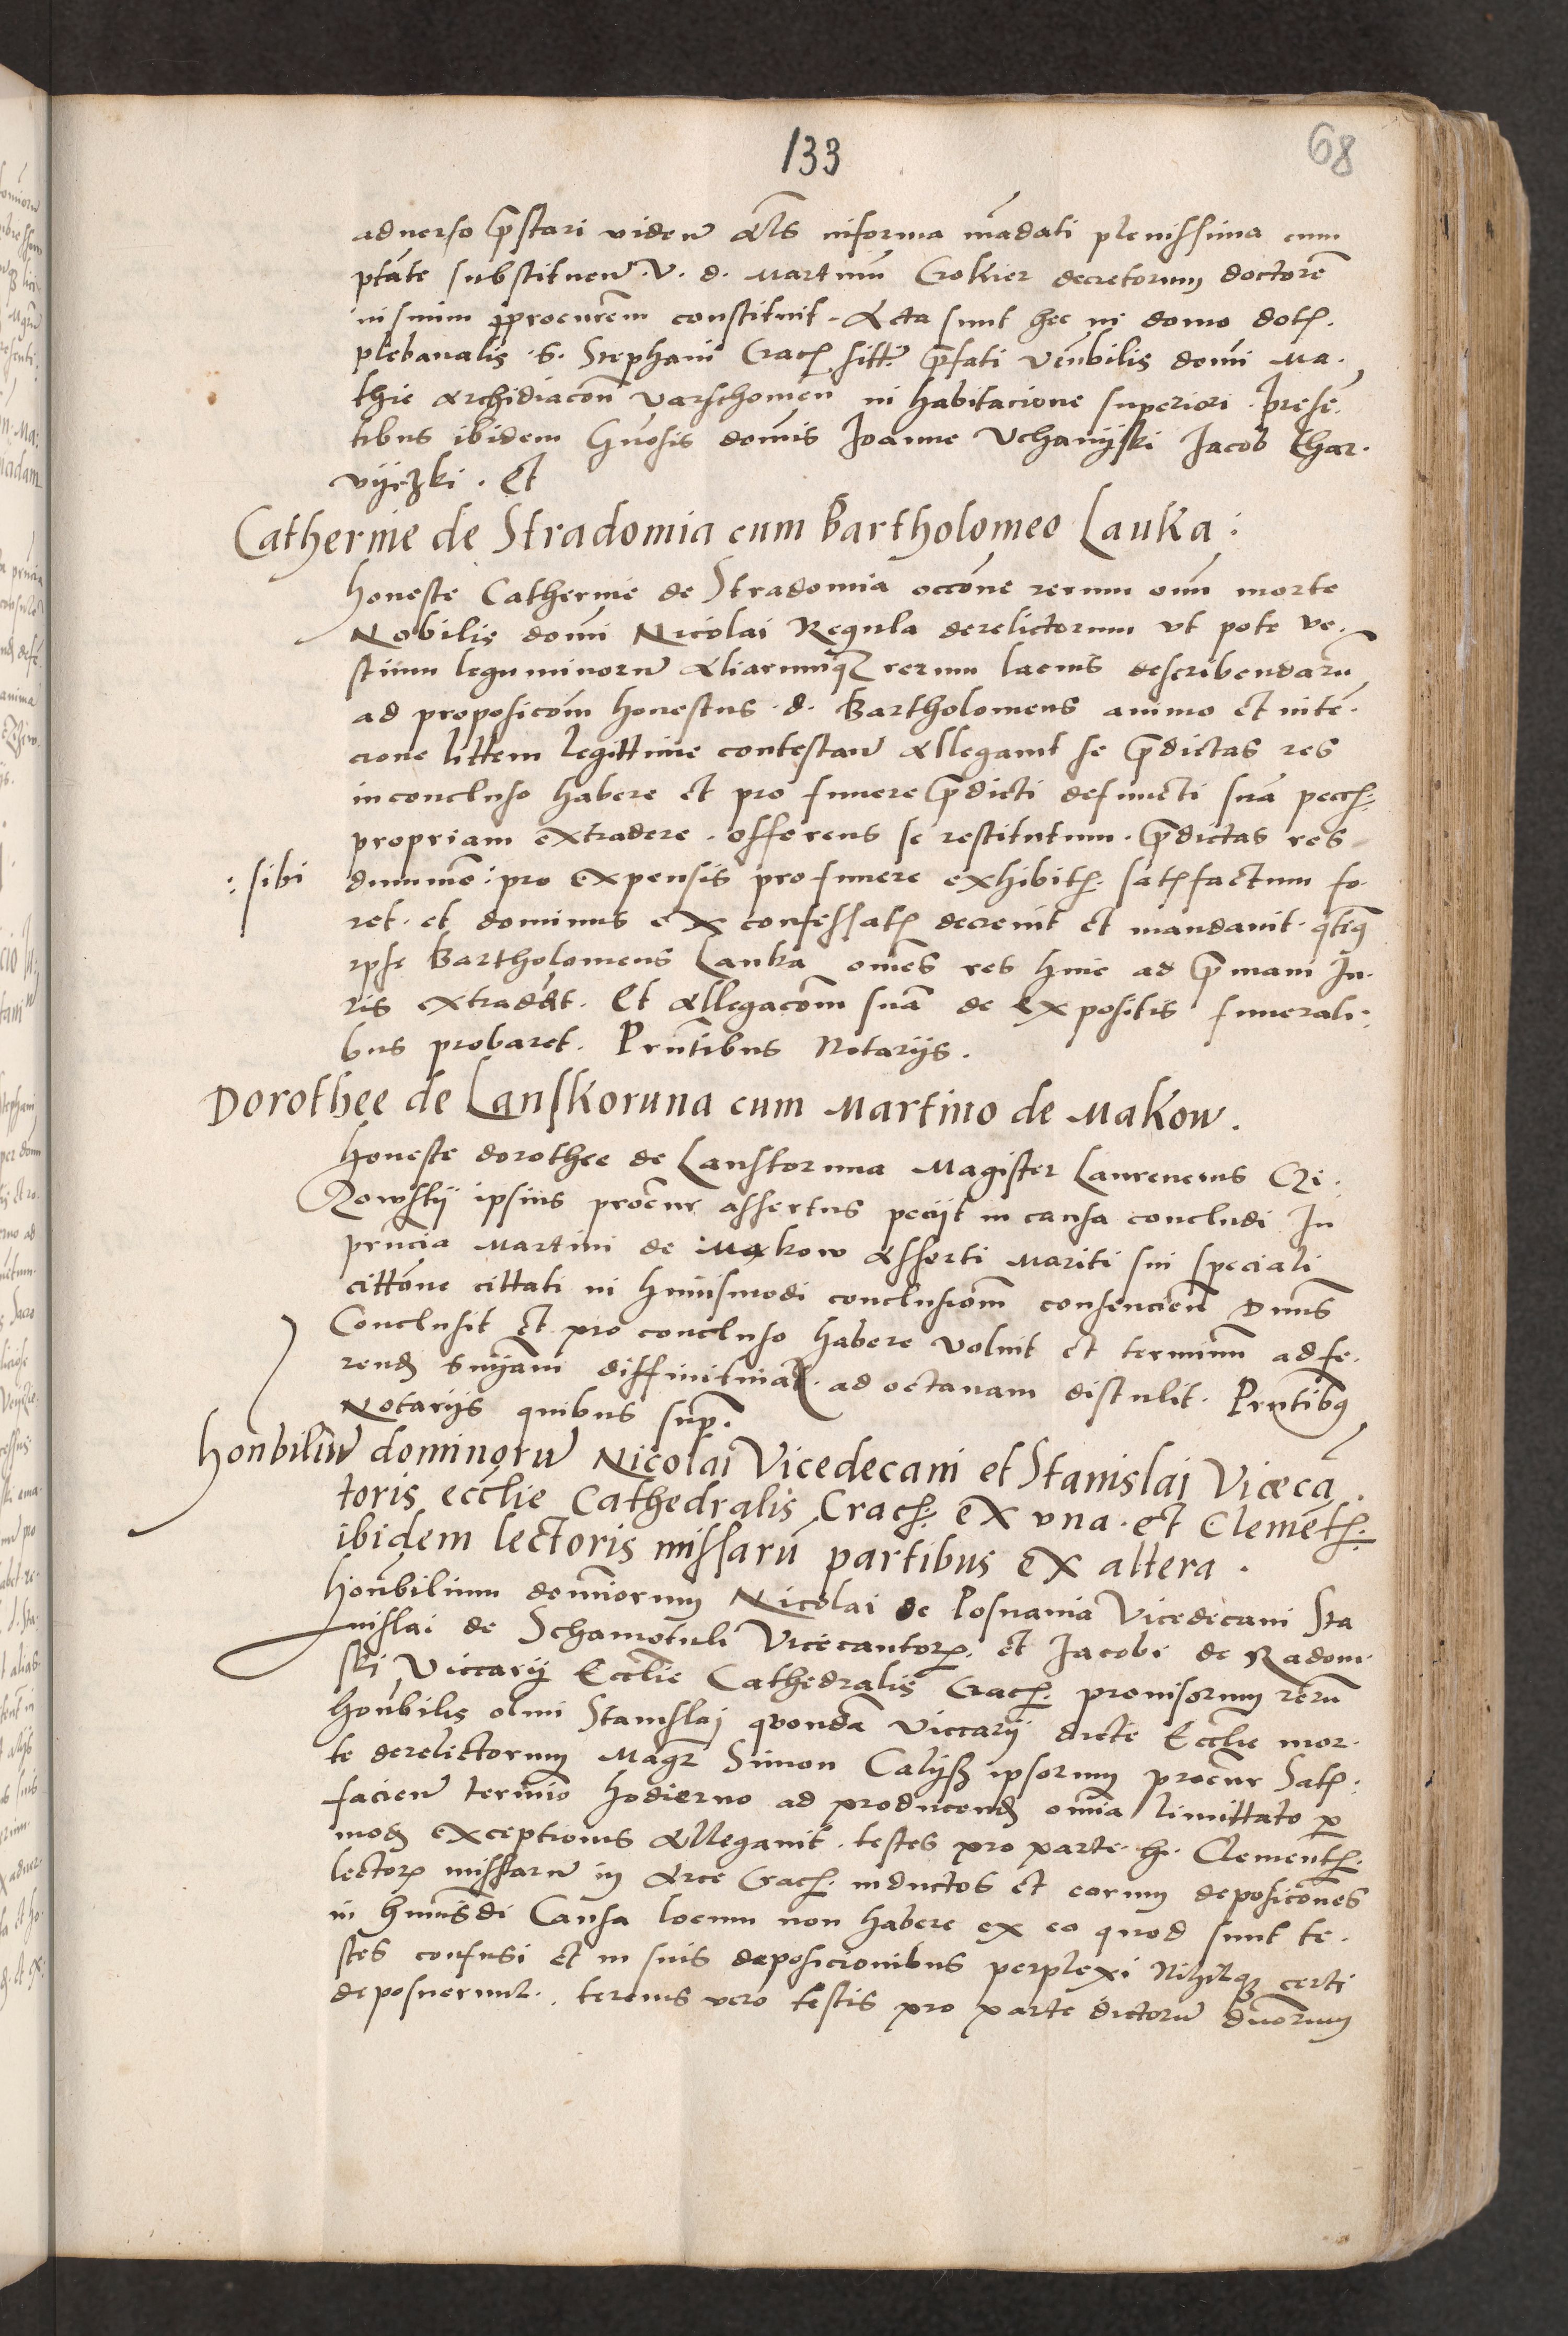 133
68
aduerso prestari videns acts informa mādati plenissima cum
ptāte substituen .V. d. Martinū Crokier decretorum doctorē
in suum procurēm constituit. Acta sunt hec in domo dotꝭ.
plebanalis .S. Stephani Cracꝭ sitt. prefati venbilis domi Ma.
thie Archidiacoñ Varschomeñ in habitacione superiori. Presē.
tibus ibidem Gnosis domis Joanne Vchanÿski Jacob Char.
vÿeʒki. Et
Catherine de Stradomia cum Bartholomeo Lauka :
Honeste Catherine de Stradomia occōne rerum oīm morte
Nobilis domi Nicolai Regula derelictorum vt pote ve.
stium leguminorum Aliarumqꝫ rerum lacius describendarū
ad proposicōm honestus .d. Bartholomeus animo et intē.
cione littem legittime contestan Allegauit se predictas res
in concluso habere et pro funere predicti defuncti suā pecꝭ:
propriam extradere. offerens se restitutum. predictas res
:sibi dummō : pro expensis pro funere exhibitꝭ. satꝭfactum fo.
ret. et dominus ex confessatꝭ decreuit et mandauit. qteꝯ
ipse Bartholomeus Lauka omēs res huic ad premam Ju.
ris extradāt. Et Allegacōm suā de expositis funerali.
bus probaret. Prntibus Notarijs.
Dorothee de Lanskoruna cum Martino de Makow.
Honeste dorothee de Lanskoruna Magister Laurencius Czi.
kowskÿ ipsius procur assertus peciit in causa concludi In
prncia Martini de Makow Asserti Mariti sui speciali
cittōne cittati in huiusmodi conclusiōm consencien Dnus
Conclusit Et pro concluso habere voluit et terminū ad fe.
rendꝭ snīam diffinitiuā. ad octauam distulit. Prntibꝯ
Notarijs quibus sup.
Honbiliū dominorū Nicolai Vicedecani et Stanislai Vicecā.
toris ecclie Cathedralis Cracꝭ: ex vna. et Clementꝭ:
ibidem lectoris missarū partibus ex altera.
Honbilium dominorum Nicolai de Posnania Vicedecani Sta
nislai de Schamotuli Vicecantorꝭ. et Jacobi de Radom.
ski Viccarÿ Ecclie Cathedralis Cracꝭ. prouisorum rerū
honbilis olmi Stanislaj quondā Viccarÿ dicte Ecclie mor.
te derelictorum Magr Simon Calÿß ipsorum procur Satꝭ.
facien termino hodierno ad producendꝭ omīa limittato per
modꝭ exceptionis Allegauit. testes pro parte .h. Clementꝭ.
lectorꝭ missarū in Arce Cracꝭ. inductos et eorum deposicōnes
in huiusdi Causa locum non habere ex eo quod sunt te.
stes confusi et in suis deposicionibus perplexi Nihilqꝫ certi
deposuerunt. tercius vero testis pro parte dictorū dnorum